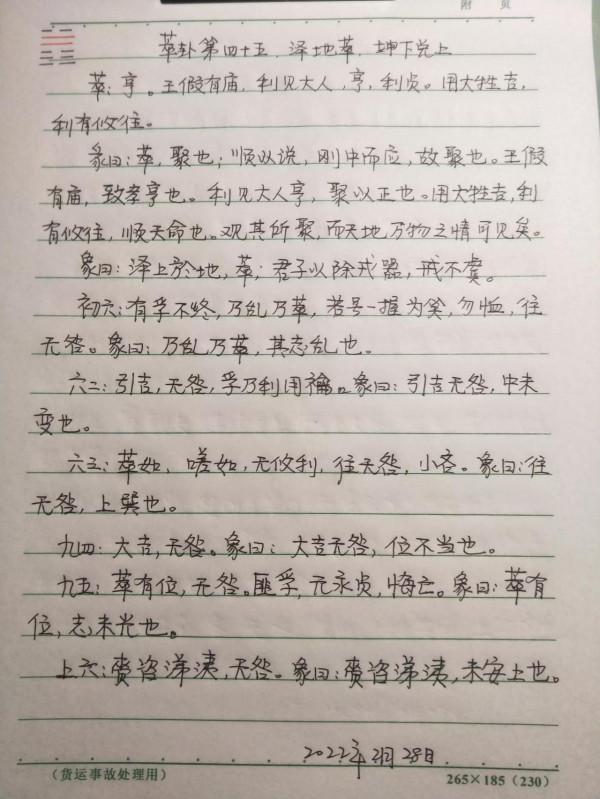 附 页
萃卦第四十五，泽地萃，坤下兑上
萃：亨。王假有庙，利见大人，亨，利贞。用大牲吉，
利有攸往。
彖曰：萃，聚也；顺以说，刚中而应，故聚也。王假
有庙，致孝亨也。利见大人亨，聚以正也。用大牲吉，利
有攸往，顺天命也。观其所聚，而天地万物之情可见矣。
象曰：泽上於地，萃；君子以除戎器，戒不虞。
初六：有孚不终，乃乱乃萃，若号一握为笑，勿恤，往
无咎。象曰：乃乱乃萃，其志乱也。
六二：引吉，无咎，孚乃利用禴。象曰：引吉无咎，中未
变也。
六三：萃如，嗟如，无攸利，往无咎，小吝。象曰：往
无咎，上巽也。
九四：大吉，无咎。象曰：大吉无咎，位不当也。
九五：萃有位，无咎。匪孚，元永贞，悔亡。象曰：萃有
位，志未光也。
上六：赍咨涕洟，无咎。象曰：赍咨涕洟，未安上也。
2022年2月28日
（货运事故处理用）
265×185（230）